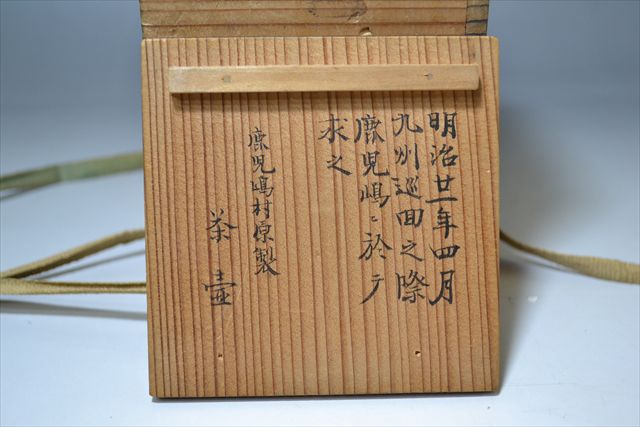 明治廿一年四月
九州巡回之際
鹿児嶋ニ於テ
求之
鹿児嶋村原製
茶壷